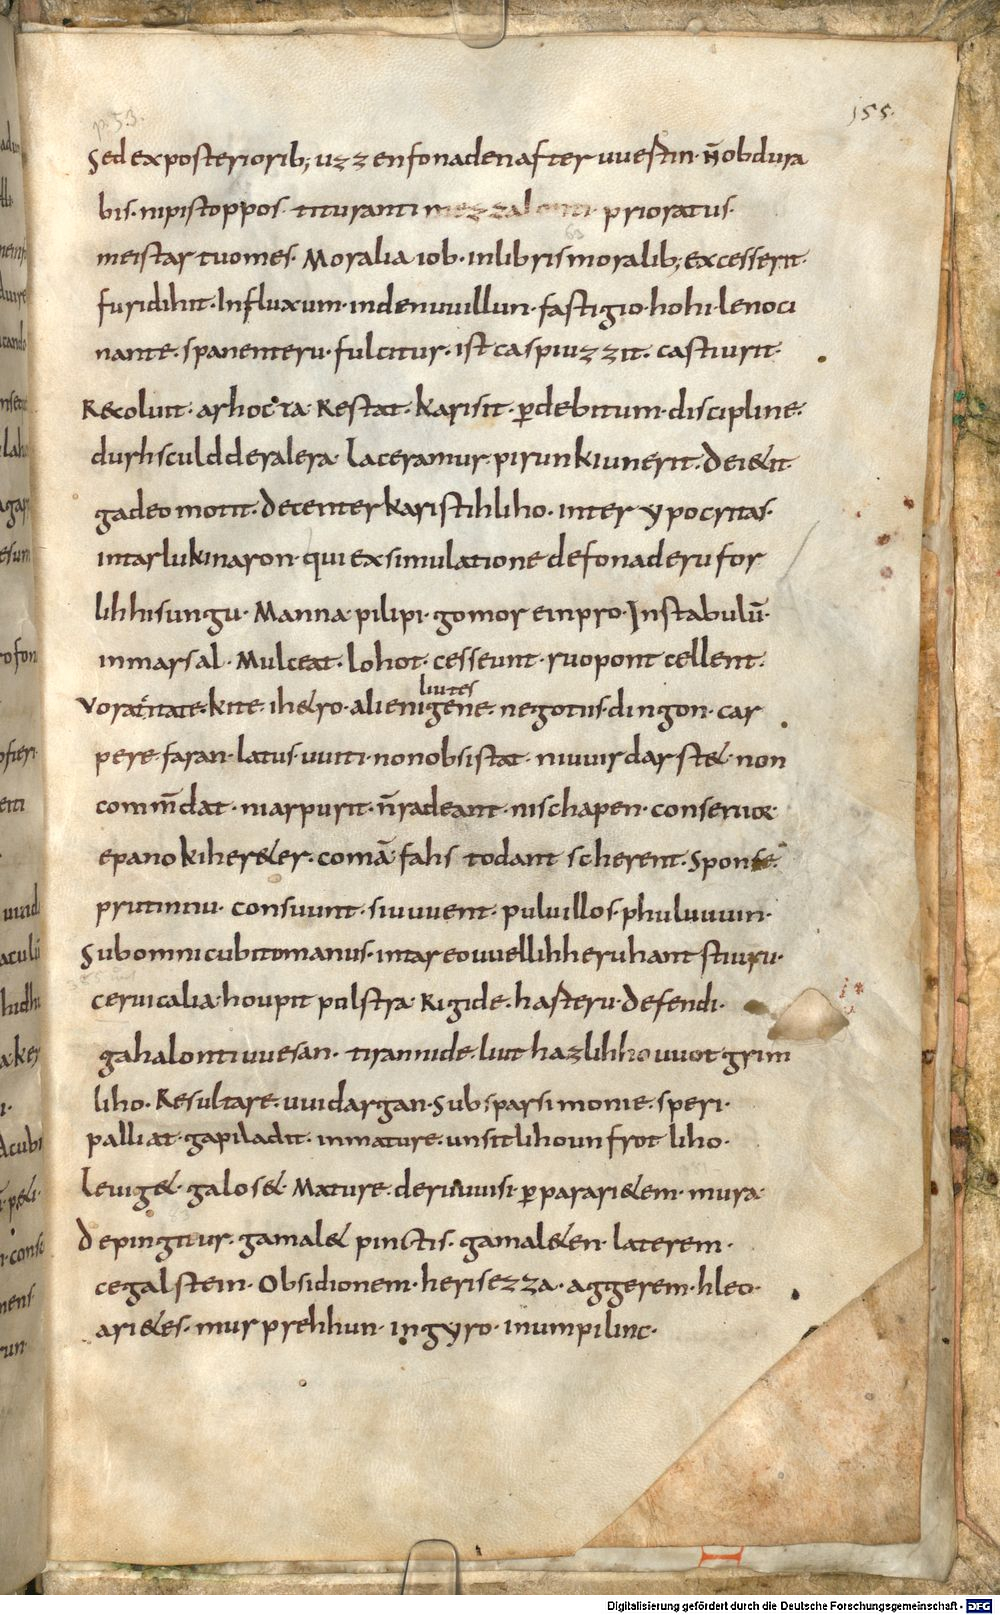 p. 53.
155.
Sed exposteriorib; uzzenfonadenafter uuestin· n̄obdura
bis· nipistoppos· tituranti mezzalonti· prioratus·
meistartuomes· Moralia iob· inlibrismoralib; excesserit·
furidihit· Influxum· indenuuillun· fastigio· hohi· lenoci
nante· spanenteru· fulcitur· ist caspiuzzit· castiurit·
Recoluit· arhoc ta· Restat· karisit· ꝑdebitum· discipline·
durhsculdderalera· laceramur· pirunkiunerit· Dei&it·
gadeomotit· Decenter karistihliho· inter ypocritas·
intarlukinaron· qui ex simulatione defonaderufor
lihhisungu· Manna· pilipi· gomor einpro· Instabulū·
inmarsal· Mulceat· lohot· cesseunt· ruopont cellent·
liutes
Voracitate· kite· ih&ro· alienigene· negotiis· dingon· car
pere· faran· latus· uuiti· nonobsistat· niuuirdarst&· non
comm̄dat· niarpurit· n̄radeant· nischapen· conseruor
epano kiher&er· comā· fahs todant scherent· Sponse·
prutinniu· consuunt· siuuuent· puluillos· phuluuuin·
Subomnicubitomanus· intareouuellihheruhant stiuru·
ceruicalia· houpit pulstra· Rigide· hasteru· Defendi·
gahalontiuuesan· tirannide· liut hazlihhouuot grim
liho· Resultare· uuidargan· Subsparsimonie· speri·
palliat· gapiladit· inmature· unsitlihounfrot liho·
leuig&· galos&· Mature· deruuuisi· ꝑparari&em· mura·
Depingitur· gamal& pinctis· gamal&en· laterem·
cegalstein· Obsidionem· herisezza· aggerem· hleo·
ari&es· murprehhun· ingyro· inumpilinc·
Digitalisierung gefördert durch die Deutsche Forschungsgemeinschaft - DFG